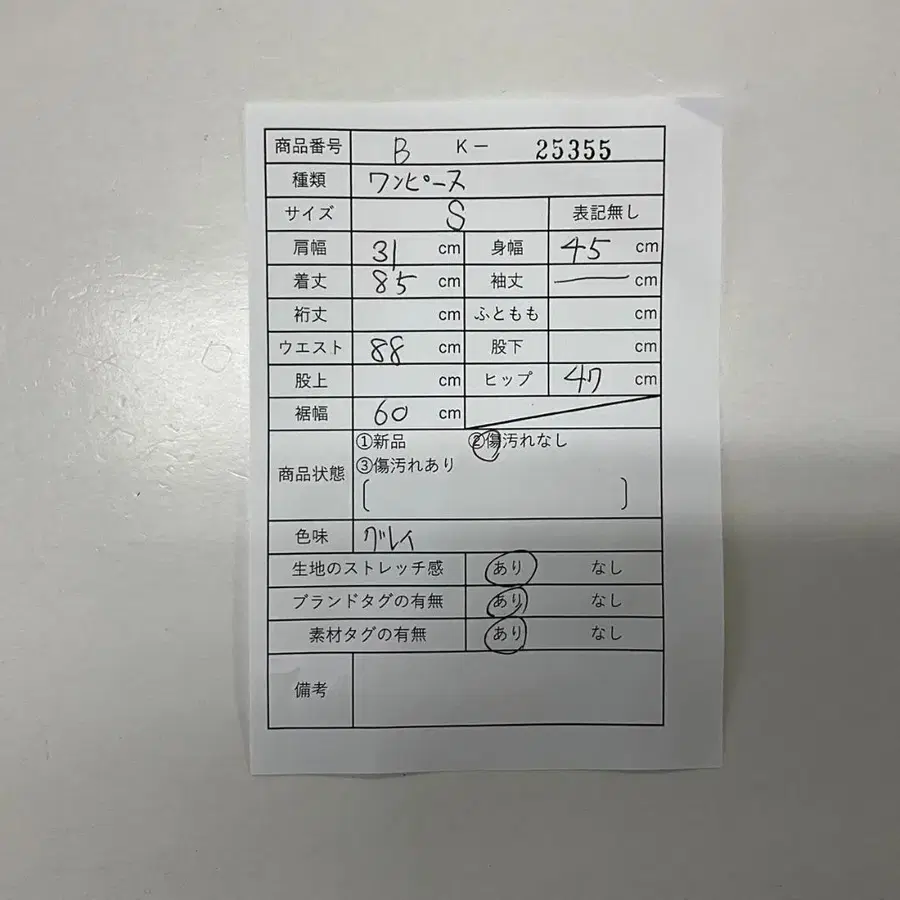 商品番号 B K- 25355
種類 ワンピース
サイズ S 表記無し
肩幅 31 cm 身幅 45 cm
着丈 85 cm 袖丈 — cm
裄丈 cm ふともも cm
ウエスト 88 cm 股下 cm
股上 cm ヒップ 47 cm
裾幅 60 cm
①新品 ②傷汚れなし
③傷汚れあり
商品状態 [ ]
色味 グレイ
生地のストレッチ感 あり なし
ブランドタグの有無 あり なし
素材タグの有無 あり なし
備考